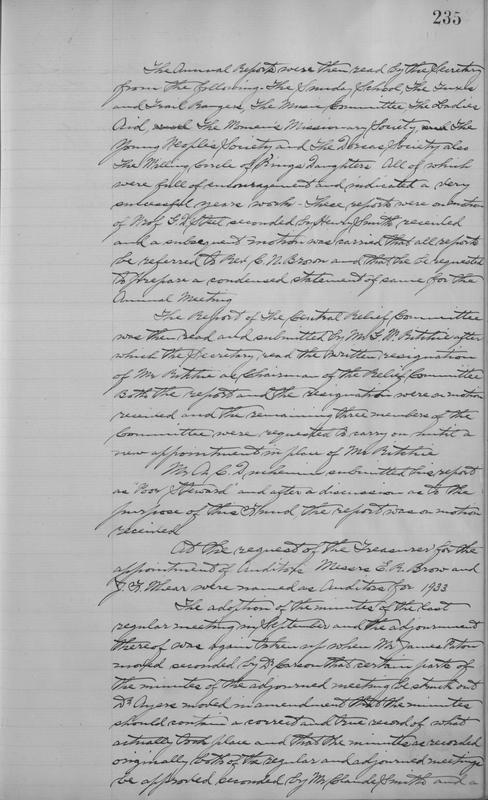 235
The Annual Reports were then read by the Secretary
from the following. The Sunday School, The Tuxis
and Trail Rangers, The Music Committee The Ladies
Aid, The Woman's Missionary Society, and The
Young People's Society and The Dorcas Society also
The Willing Circle of Kings Daughters All of which
were full of encouragement and indicated a very
successful years work - These reports were on motion
of Prof. Steel seconded by Henry Smith received
and a subsequent motion was carried that all reports
be referred to Rev. C. N. Brown and that he be requested
to prepare a condensed statement of same for the
Annual Meeting
The Report of The Central Relief Committee
was then read and submitted by Mr. Ritchie after
which the Secretary read the written resignation
of Mr Ritchie as Chairman of the Relief Committee
Both the report and the resignation were on motion
received and the remaining three members of the
Committee were requested to carry on until a
new appointment in place of Mr Ritchie
Mr. A. C. submitted his report
as "Poor Steward" and after a discussion as to the
purpose of this Fund the report was on motion
received
At the request of the Treasurer for the
appointment of Auditors Messrs E. R. Brow and
J. F. Whear were named as Auditors for 1933
The adoption of the minutes of the last
regular meeting in September and the adjournment
thereof was again taken up when Mr. James Paton
moved seconded by Dr Carson that certain parts of
the minutes of the adjourned meeting be struck out
Dr Ayers moved in amendment that the minutes
should contain a correct and true record of what
actually took place and that the minutes as recorded
originally both of the regular and adjourned meetings
be approved seconded by Mr Claude Smith and a